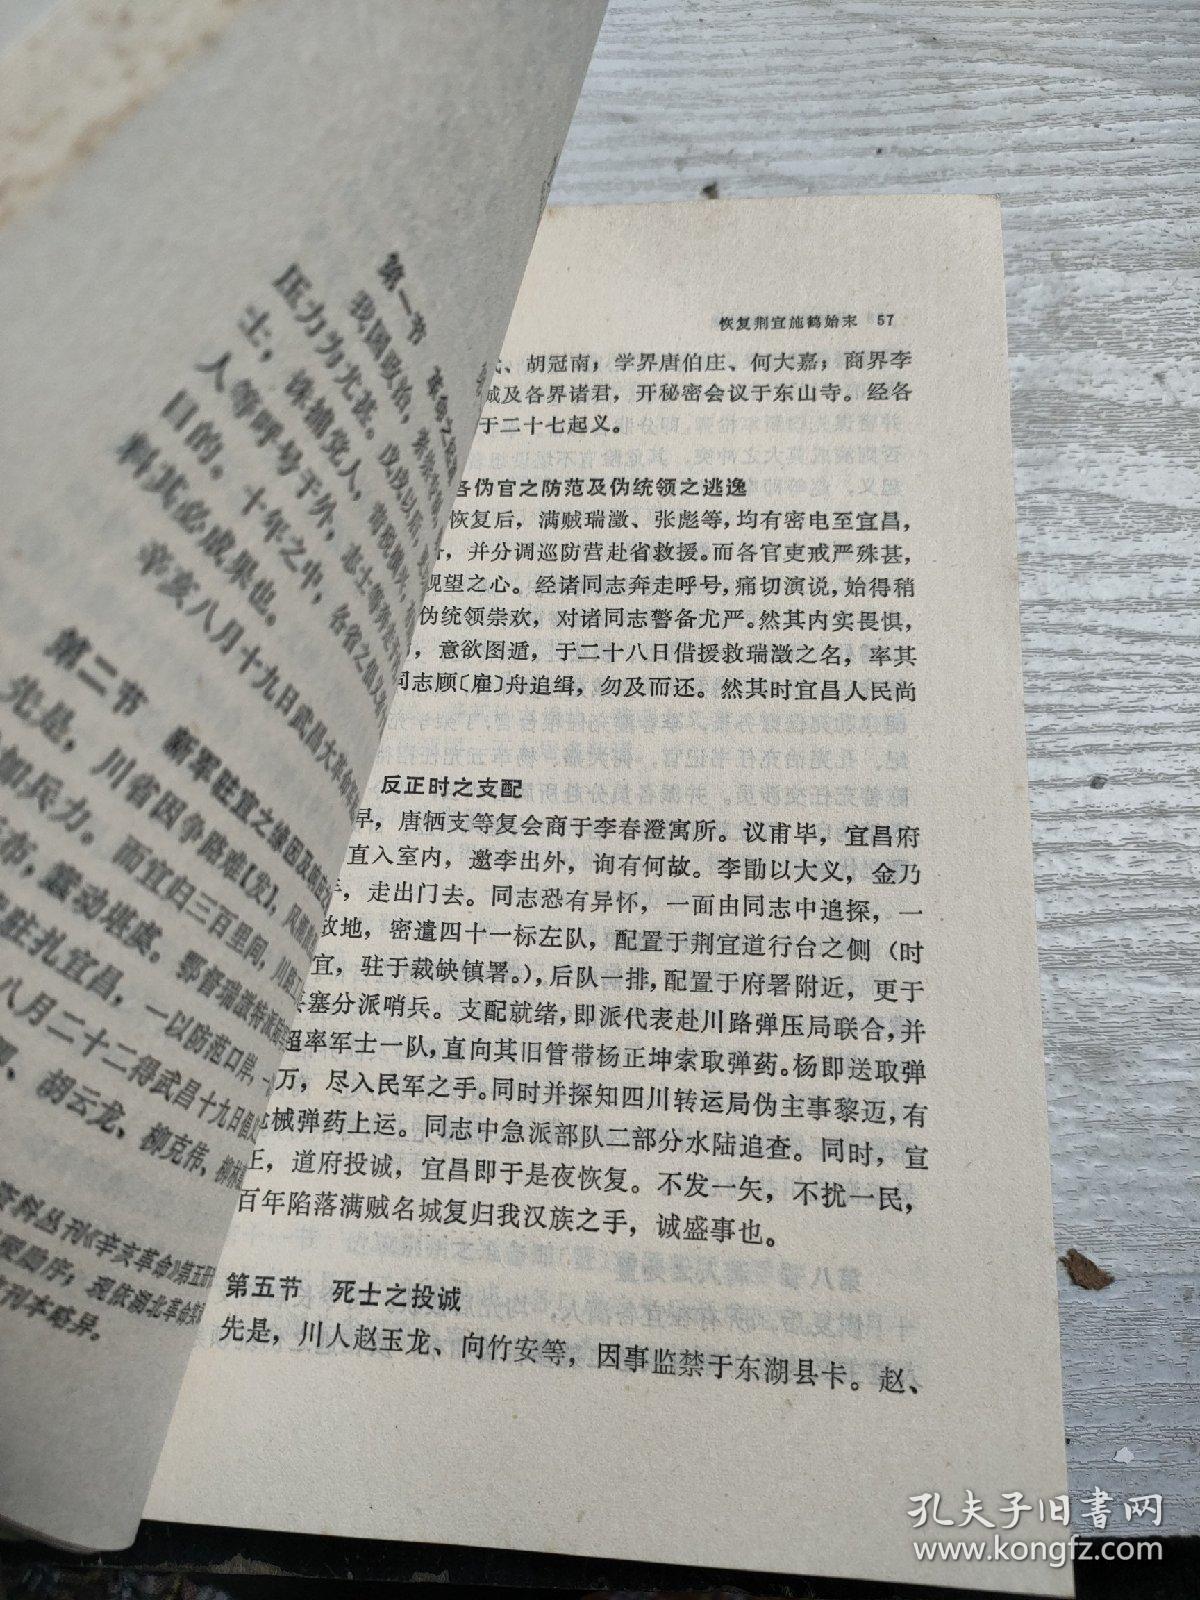 第一节
我国政治，素
压力为尤甚。戊戌以后，
士，诛捕党人，
人等呼号于外，志士
目的。十年之中，各省之
料其必成果也。
辛亥八月十九日武昌大革命
第二节 新军驻宜之缘因及
先是，川省因争路难〔发〕，风潮
加兵力。而宜归三百里间，川路
市，震动堪虞。鄂督瑞澂特派
驻扎宜昌，一以防范口岸，一
八月二十二得武昌十九日倡
、胡云龙、柳克伟，柳林
资料丛刊《辛亥革命》第五册
序；现依湖北革命实
刊本略异。
恢复荆宜施鹤始末 57
、胡冠南；学界唐伯庄、何大嘉；商界李
诚及各界诸君，开秘密会议于东山寺。经各
于二十七起义。
各伪官之防范及伪统领之逃逸
恢复后，满贼瑞澂、张彪等，均有密电至宜昌，
，并分调巡防营赴省救援。而各官吏戒严殊甚，
观望之心。经诸同志奔走呼号，痛切演说，始得稍
伪统领崇欢，对诸同志警备尤严。然其内实畏惧，
，意欲图遁，于二十八日借援救瑞澂之名，率其
同志顾〔雇〕舟追缉，勿及而还。然其时宜昌人民尚
反正时之支配
早，唐牺支等复会商于李春澄寓所。议甫毕，宜昌府
直入室内，邀李出外，询有何故。李勖以大义，金乃
手，走出门去。同志恐有异怀，一面由同志中追探，一
故地，密遣四十一标左队，配置于荆宜道行台之侧（时
宜，驻于裁缺镇署。），后队一排，配置于府署附近，更于
要塞分派哨兵。支配就绪，即派代表赴川路弹压局联合，并
超率军士一队，直向其旧管带杨正坤索取弹药。杨即送取弹
万，尽入民军之手。同时并探知四川转运局伪主事黎迈，有
械弹药上运。同志中急派部队二部分水陆追查。同时，宣
正，道府投诚，宜昌即于是夜恢复。不发一矢，不扰一民，
百年陷落满贼名城复归我汉族之手，诚盛事也。
第五节 死士之投诚
先是，川人赵玉龙、向竹安等，因事监禁于东湖县卡。赵、
孔夫子旧书网
www.kongfz.com